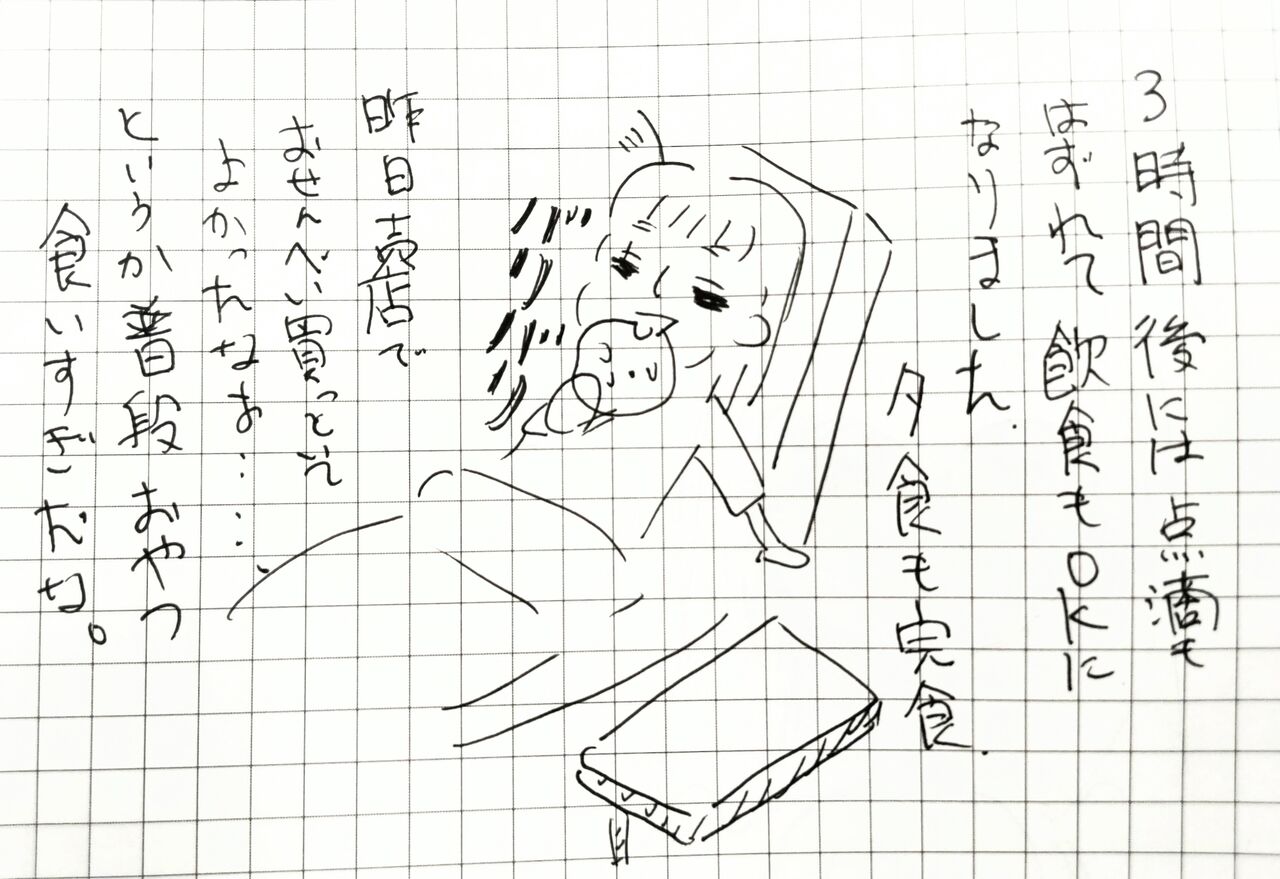 3時間後には点滴も
はずれて飲食もOKに
なりました.
夕食も完食.
バリバリ
昨日売店で
おせんべい買っといて
よかったなあ……
というか普段おやつ
食いすぎだな。